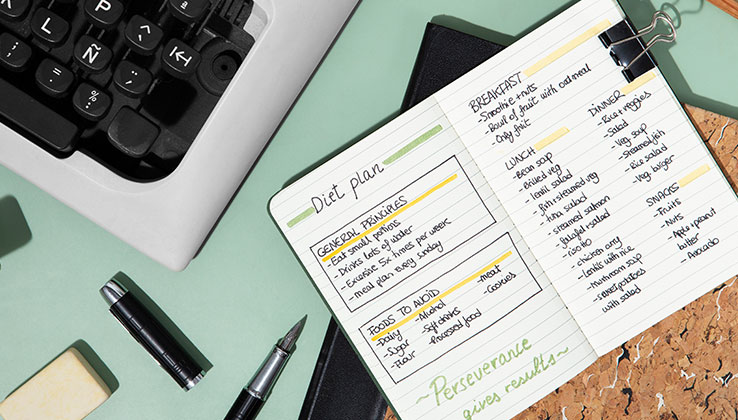 P
L
Ñ
Diet plan
GENERAL PRINCIPLES
- Eat small portions
- Drinks lots of water
- Excersise 5x times per week
- meal plan every sunday
FOODS TO AVOID
- Dairy
- Sugar
- Flour
- Alcohol
- Soft drinks
- Processed food
- meat
- Cookies
~Perseverance
gives results~
BREAKFAST
- Smoothie + nuts
- Bowl of fruit with oatmeal
- Only fruit
LUNCH
- Bean soup
- Broiled veg
- lentil salad
- fish + steamed veg
- tuna salad
- steamed salmon
- falafel + salad
- risotto
- chicken curry
- Lentils with rice
- mushroom soup
- sweet potatoes
with salad
DINNER
- Rice + veggies
- Salad
- Veg soup
- Steamed fish
- Rice salad
- Veg burger
SNACKS
- Fruits
- Nuts
- Apple + peanut
butter
- Avocado